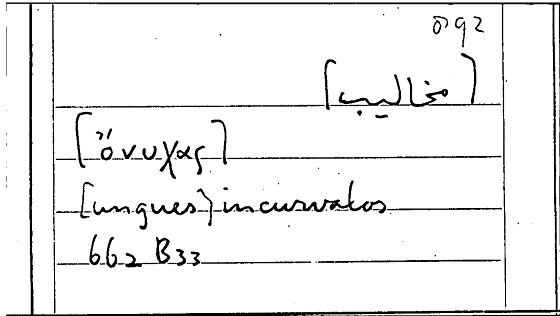 [مخاليب]
[ὄνυχας]
[ungues] incurvatos
662 B33